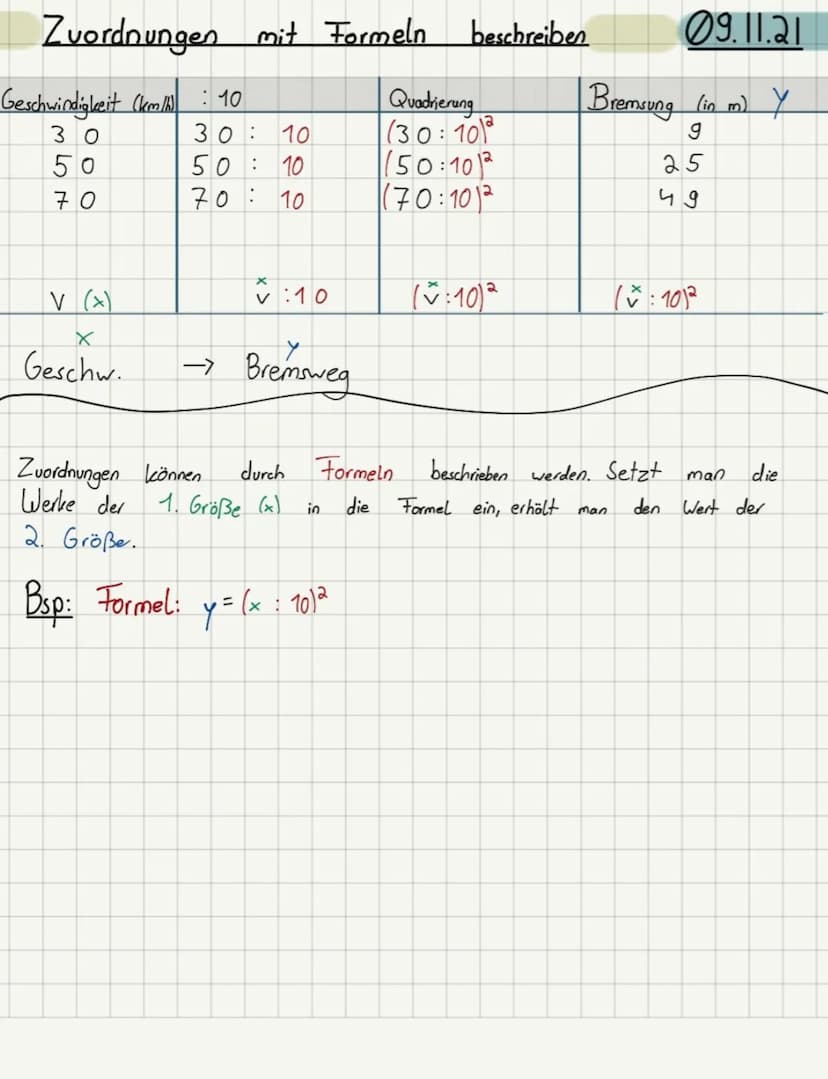 Zuordnungen mit Formeln beschreiben 09.11.21
Geschwindigkeit (km/h) : 10 Quadrierung Bremsung (in m) y
30 30 : 10 (30 : 10)² 9
50 50 : 10 (50 : 10)² 25
70 70 : 10 (70 : 10)² 49
x x x
v (x) v : 10 (v : 10)² (v : 10)²
x y
Geschw. → Bremsweg
Zuordnungen können durch Formeln beschrieben werden. Setzt man die
Werke der 1. Größe (x) in die Formel ein, erhält man den Wert der
2. Größe.
Bsp: Formel: y = (x : 10)²